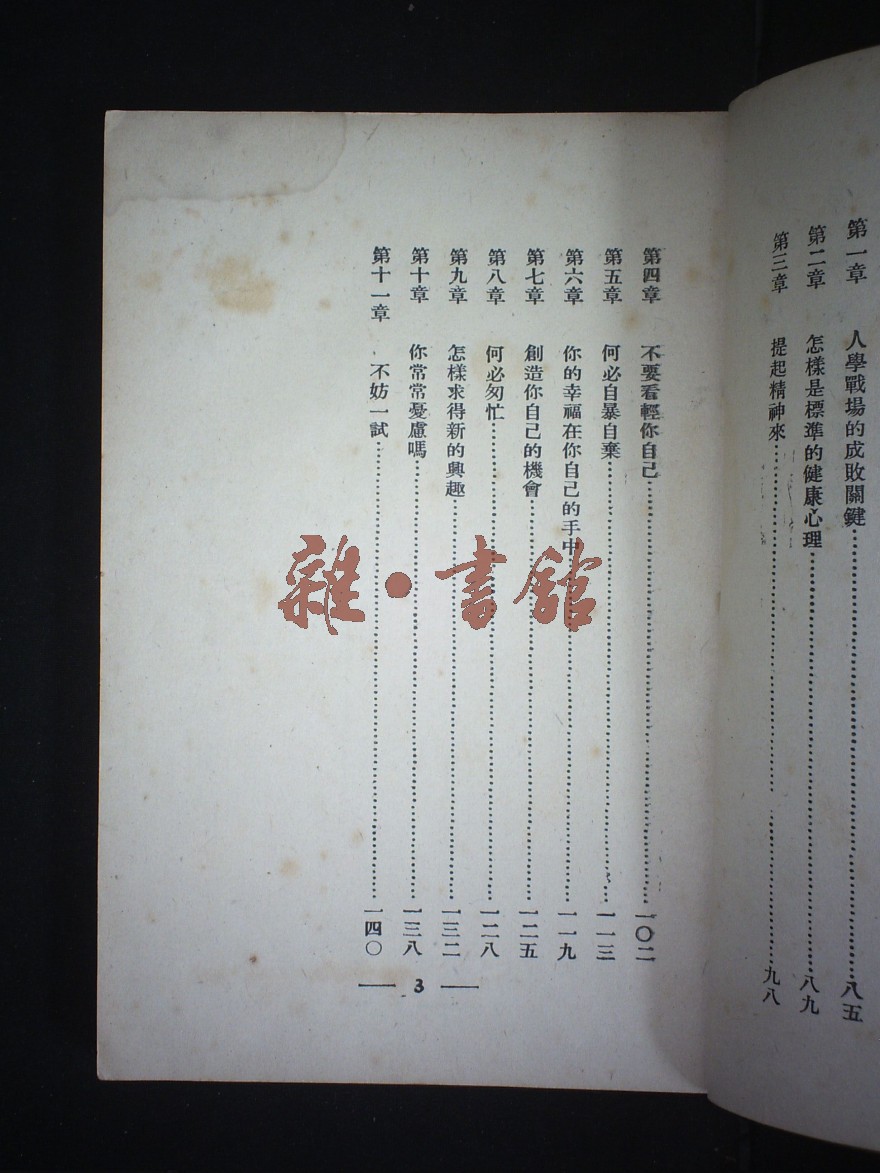 第一章 人學戰場的成敗關鍵……八五
第二章 怎樣是標準的健康心理……八九
第三章 提起精神來……九八
第四章 不要看輕你自己……一〇二
第五章 何必自暴自棄……一一三
第六章 你的幸福在你自己的手中……一一九
第七章 創造你自己的機會……一二五
第八章 何必匆忙……一二八
第九章 怎樣求得新的興趣……一三二
第十章 你常常憂慮嗎……一三八
第十一章 不妨一試……一四〇
— 3 —
雜·書館